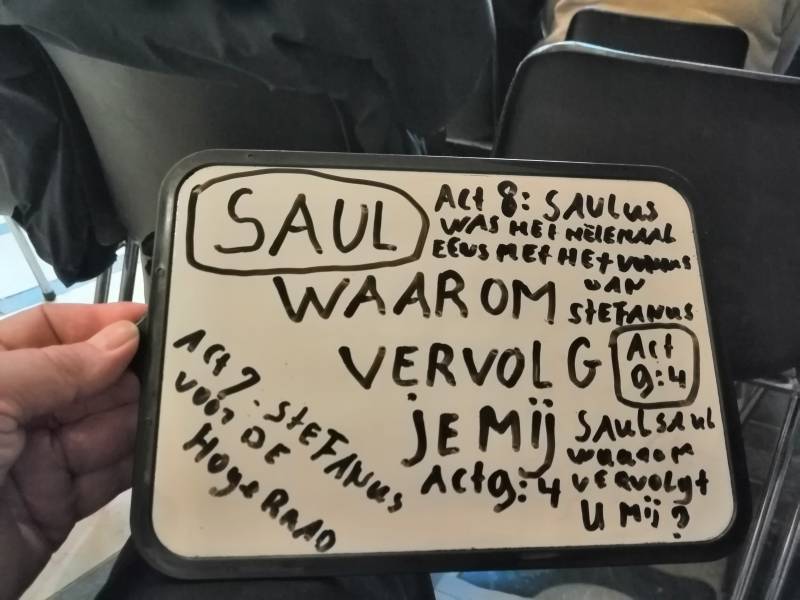 SAUL
WAAROM
VERVOLG
JE MIJ
Act 8: SAULUS
WAS HET HELEMAAL
EENS MET HET VONNIS
VAN
STEFANUS
Act
9:4
Act 7 - STEFANUS
VOOR DE
Hoge RAAD
Act 9:4
SAUL SAUL
waarom
VERVOLgt
U Mij?